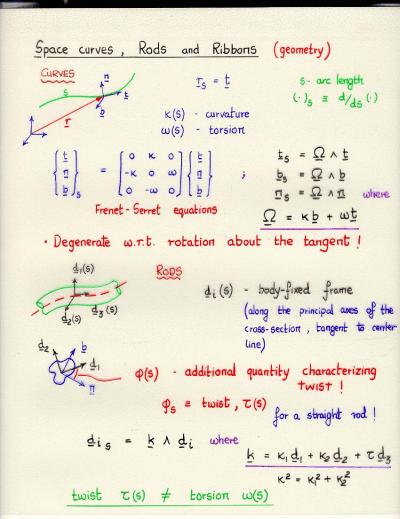 Space curves, Rods and Ribbons (geometry)
CURVES
n
s
t
b
r
r_s = t
s - arc length
(·)_s ≡ d/ds (·)
κ(s) - curvature
ω(s) - torsion
{t n b}_s = [0 κ 0; -κ 0 ω; 0 -ω 0] {t n b} ;
t_s = Ω ∧ t
b_s = Ω ∧ b
n_s = Ω ∧ n where
Frenet-Serret equations
Ω = κb + ωt
· Degenerate w.r.t. rotation about the tangent !
RODS
d₁(s)
d₂(s)
d₃(s)
d_i(s) - body-fixed frame
(along the principal axes of the
cross-section, tangent to center
line)
d₂
b
d₁
n
φ(s) - additional quantity characterizing
twist !
φ_s ≡ twist, τ(s)
for a straight rod !
d_i s = k ∧ d_i where
k = κ₁d₁ + κ₂d₂ + τd₃
κ² = κ₁² + κ₂²
twist τ(s) ≠ torsion ω(s)